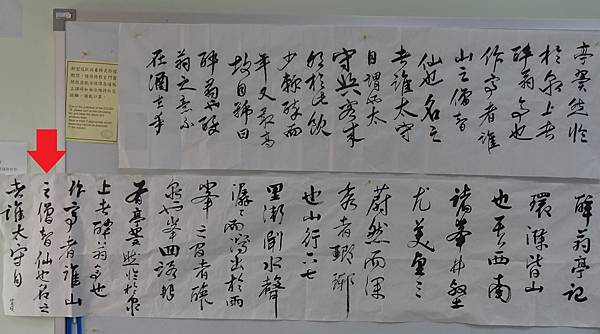 亭翼然臨
於泉上者
醉翁亭也
作亭者誰
山之僧智
仙也名之
者誰太守
自謂也太
守與客來
飲於此飲
少輒醉而
年又最高
故自號曰
醉翁也醉
翁之意不
在酒在乎
醉翁亭記
環滁皆山
也其西南
諸峯林壑
尤美望之
蔚然而深
秀者瑯琊
也山行六七
里漸聞水聲
潺潺而瀉出於兩
峯之間者釀
泉也峯回路轉
有亭翼然臨於泉
上者醉翁亭也
作亭者誰山
之僧智仙也名之
者誰太守自